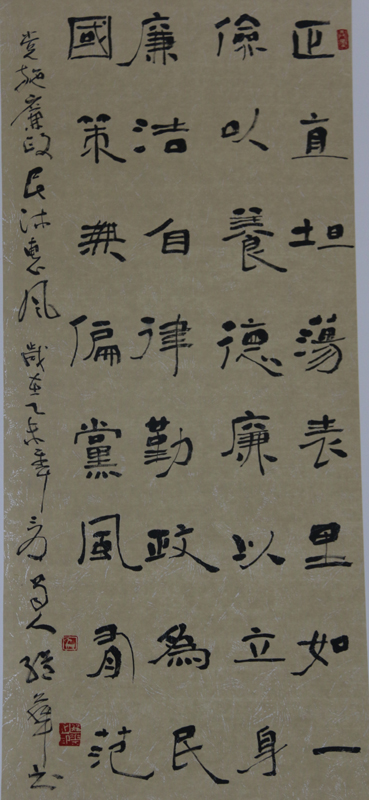 正直坦蕩表里如一
儉以養德廉以立身
廉洁自律勤政為民
國策無偏黨風有范
党施廉政民沐惠风 歲在乙未年 人 书